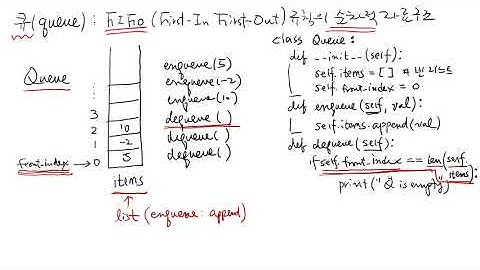 큐(queue) : FIFO (First-In First-Out) 규칙의 순차적 자료구조
Queue
enqueue(5)
enqueue(-2)
enqueue(10)
dequeue( )
dequeue( )
dequeue( )
3
2
1
front_index → 0
10
-2
5
items
list (enqueue: append)
class Queue:
def __init__(self):
self.items = [ ] #
self.front_index = 0
def enqueue(self, val)
self.items.append(val)
def dequeue(self):
if self.front_index == len(self.items):
print("Q is empty")